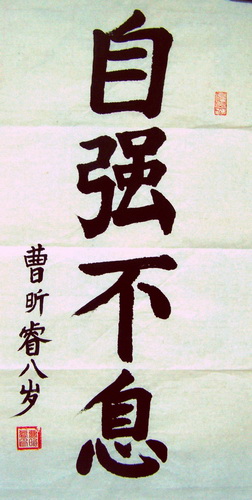 自强不息
曹昕睿八岁